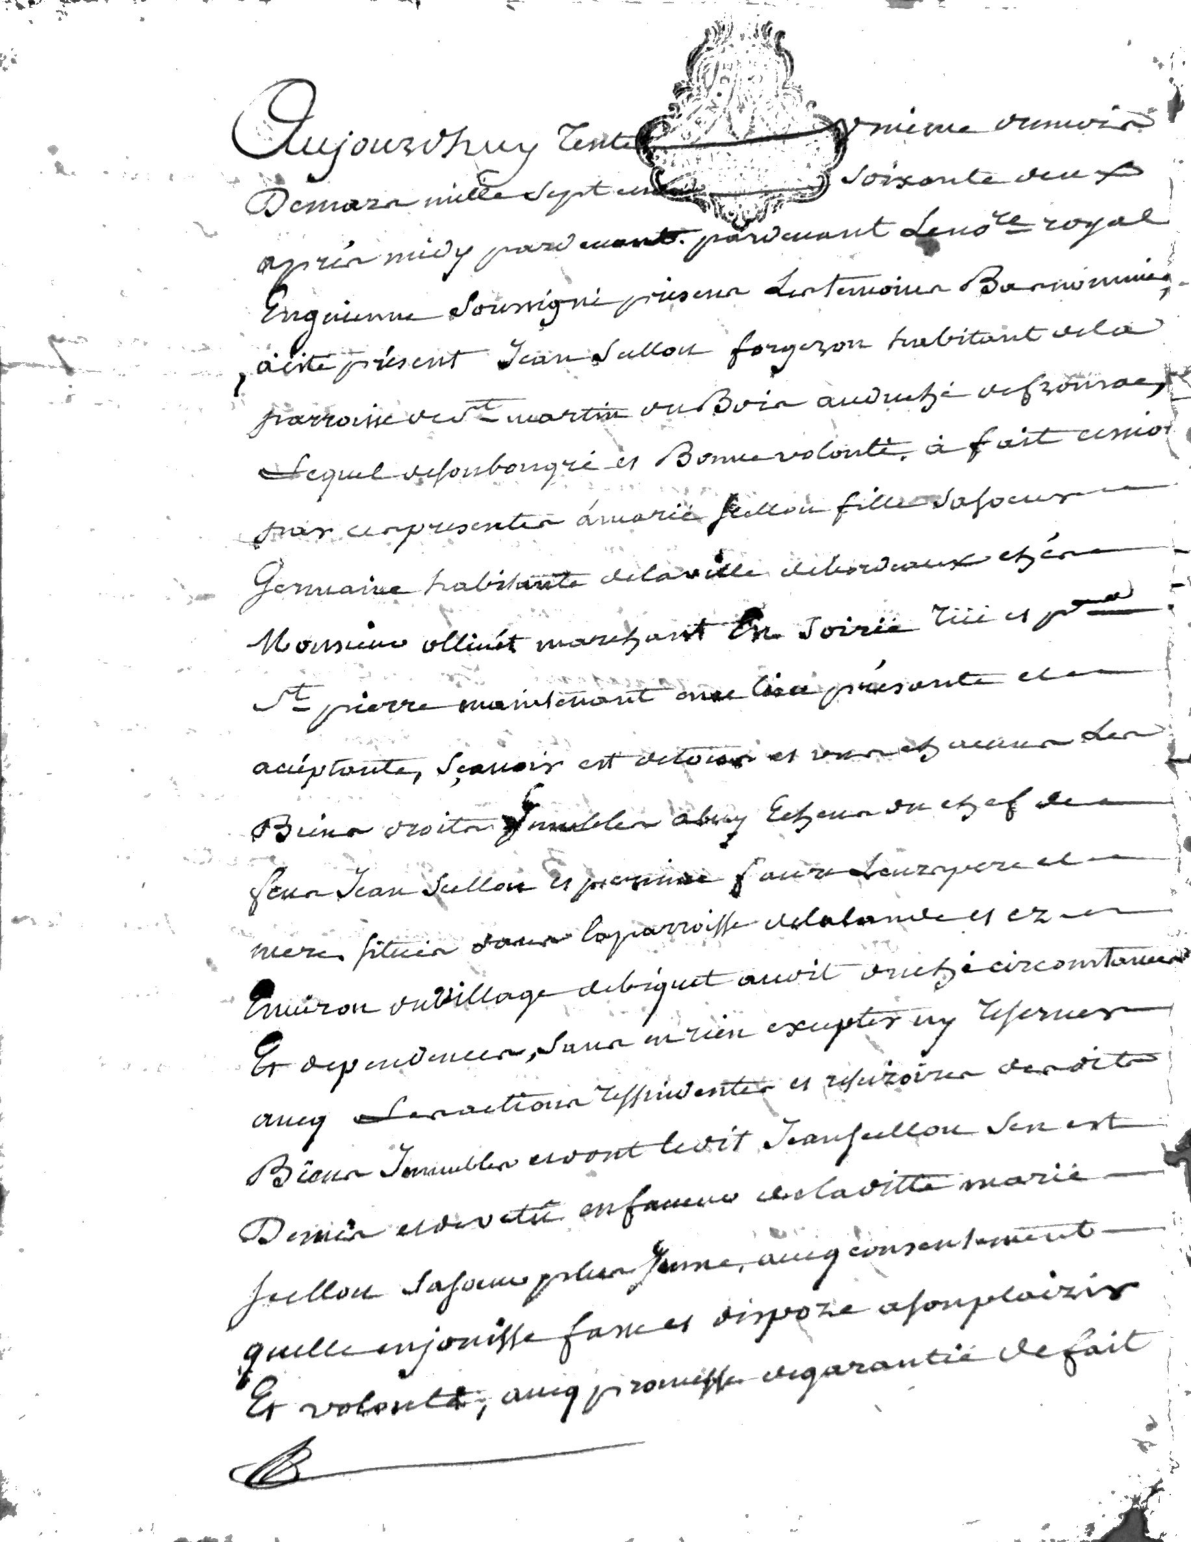 Aujourdhuy Tente unieme dumois
Demars mille Sept cens soixante deux
aprés midy pardevant. pardevant Lenore royal
Enguienne Soussigné présens Lestemoins Basnommés,
à été présent Jean Seillou forgeron habitant dela
parroisse de St martin du Bois auduché defronsac,
Lequel desonbongré et Bonne volonté, à fait cession
par cesprésentes ámarie Seillou fille Sasoeur
Germaine habitante delaville debordeaux chés
Monsieur ollivét marchant En Soirie et
St pierre maintenant ence lieu présante et
acéptante, Sçavoir est detous et uns chacuns Les
Biens droits Jmubles aluy Echeus du chef de
feus Jean Seillou et faure Leurs pere et
mere, situés dans laparroisse delalande et ez
Environ du Village debiquet audit duché circonstances
Et dependences, Sans enrien excepter ny reserver
aucq Lesactions et resizoires desdits
Biens Jmmubles edont ledit Jeanseillou Sen est
Demis et devetu enfaveur deladitte marie
Seillou Sasoeur plus Jeune, avecq consentement
quelle enjouisse fasse et dispoze asonplaizir
Et volonté, avecq promesse degarantie de fait